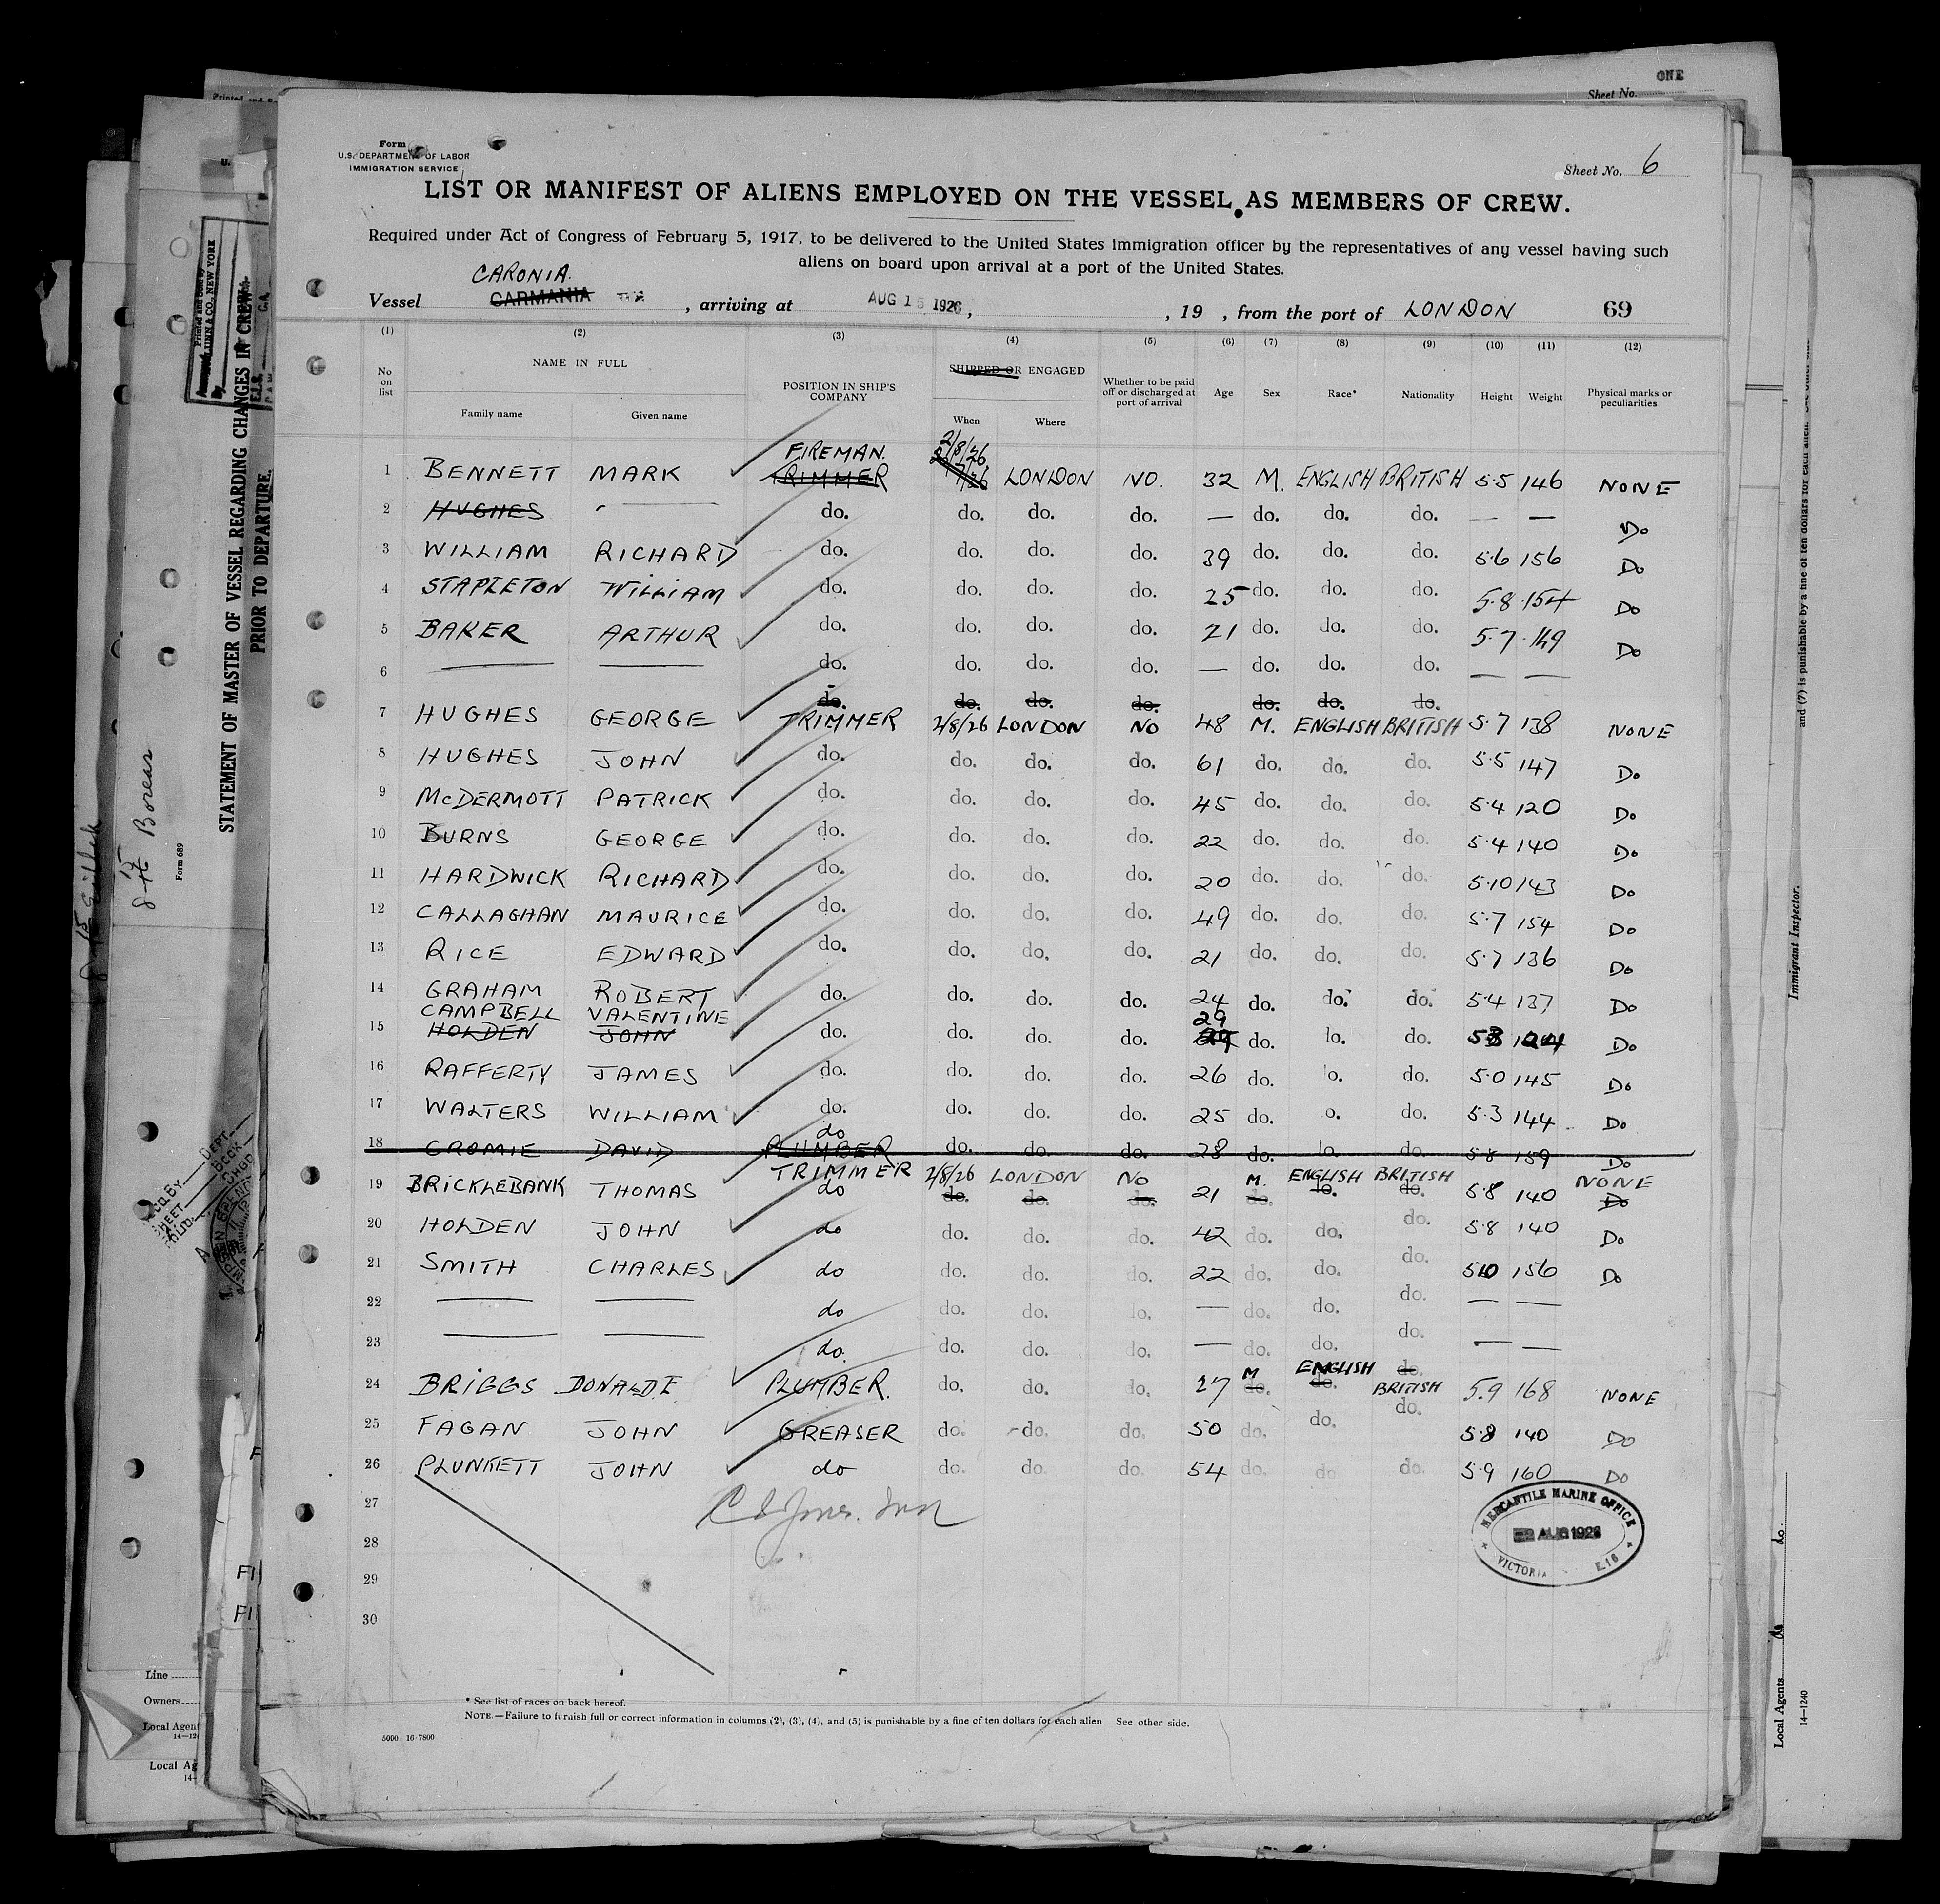 ONE
Sheet No.
Form
U.S. DEPARTMENT OF LABOR
IMMIGRATION SERVICE
Sheet No. 6
LIST OR MANIFEST OF ALIENS EMPLOYED ON THE VESSEL AS MEMBERS OF CREW.
Required under Act of Congress of February 5, 1917, to be delivered to the United States immigration officer by the representatives of any vessel having such
aliens on board upon arrival at a port of the United States.
CARONIA
Vessel CARMANIA , arriving at AUG 15 1926, , 19 , from the port of LONDON 69
(1) (2) (3) (4) (5) (6) (7) (8) (9) (10) (11) (12)
No on list NAME IN FULL POSITION IN SHIP'S COMPANY SHIPPED OR ENGAGED Whether to be paid off or discharged at port of arrival Age Sex Race* Nationality Height Weight Physical marks or peculiarities
Family name Given name When Where
FIREMAN. 2/8/26
1 BENNETT MARK TRIMMER LONDON NO. 32 M. ENGLISH BRITISH 5.5 146 NONE
2 HUGHES — do. do. do. do. — do. do. do. — — Do
3 WILLIAM RICHARD do. do. do. do. 39 do. do. do. 5.6 156 Do
4 STAPLETON WILLIAM do. do. do. do. 25 do. do. do. 5.8 154 Do
5 BAKER ARTHUR do. do. do. do. 21 do. do. do. 5.7 149 Do
6 — — do. do. do. do. — do. do. do. — —
do. do. do. do. do. do. do.
7 HUGHES GEORGE TRIMMER 2/8/26 LONDON NO 48 M. ENGLISH BRITISH 5.7 138 NONE
8 HUGHES JOHN do. do. do. do. 61 do. do. do. 5.5 147 Do
9 McDERMOTT PATRICK do. do. do. do. 45 do. do. do. 5.4 120 Do
10 BURNS GEORGE do. do. do. do. 22 do. do. do. 5.4 140 Do
11 HARDWICK RICHARD do. do. do. do. 20 do. do. do. 5.10 143 Do
12 CALLAGHAN MAURICE do. do. do. do. 49 do. do. do. 5.7 154 Do
13 RICE EDWARD do. do. do. do. 21 do. do. do. 5.7 136 Do
14 GRAHAM ROBERT do. do. do. do. 24 do. do. do. 5.4 137 Do
CAMPBELL VALENTINE 29
15 HOLDEN JOHN do. do. do. do. do. lo. do. Do
16 RAFFERTY JAMES do. do. do. do. 26 do. lo. do. 5.0 145 Do
17 WALTERS WILLIAM do. do. do. do. 25 do. o. do. 5.3 144 Do
do
18 CROMIE DAVID PLUMBER do. do. do. 28 do. lo. do. 5.8 159 Do
TRIMMER 2/8/26 LONDON NO M. ENGLISH BRITISH NONE
19 BRICKLEBANK THOMAS do do. do. do. 21 do. lo. do. 5.8 140 Do
20 HOLDEN JOHN do do. do. do. 42 do. do. do. 5.8 140 Do
21 SMITH CHARLES do do. do. do. 22 do. do. do. 5.10 156 Do
22 — — do do. do. lo. — do. do. do. — —
23 — — do. do. do. do. — do. do. do. — —
M ENGLISH do.
24 BRIGGS DONALD E PLUMBER. do. do. do. 27 do. do. BRITISH 5.9 168 NONE
25 FAGAN JOHN GREASER do. do. do. 50 do. do. do. 5.8 140 Do
26 PLUNKETT JOHN do do. do. do. 54 do. do do. 5.9 160 Do
27
28
29
30
MERCANTILE MARINE OFFICE
AUG 1926
VICTORIA E.16
* See list of races on back hereof.
NOTE.—Failure to furnish full or correct information in columns (2), (3), (4), and (5) is punishable by a fine of ten dollars for each alien See other side.
5000 16-7800
STATEMENT OF MASTER OF VESSEL REGARDING CHANGES IN CREW
PRIOR TO DEPARTURE.
Form 689
Boreas
Line
Owners
Local Agent
Local Ag
and (7) is punishable by a fine of ten dollars for each alien.
Immigrant Inspector.
Local Agents do do.
14—1240